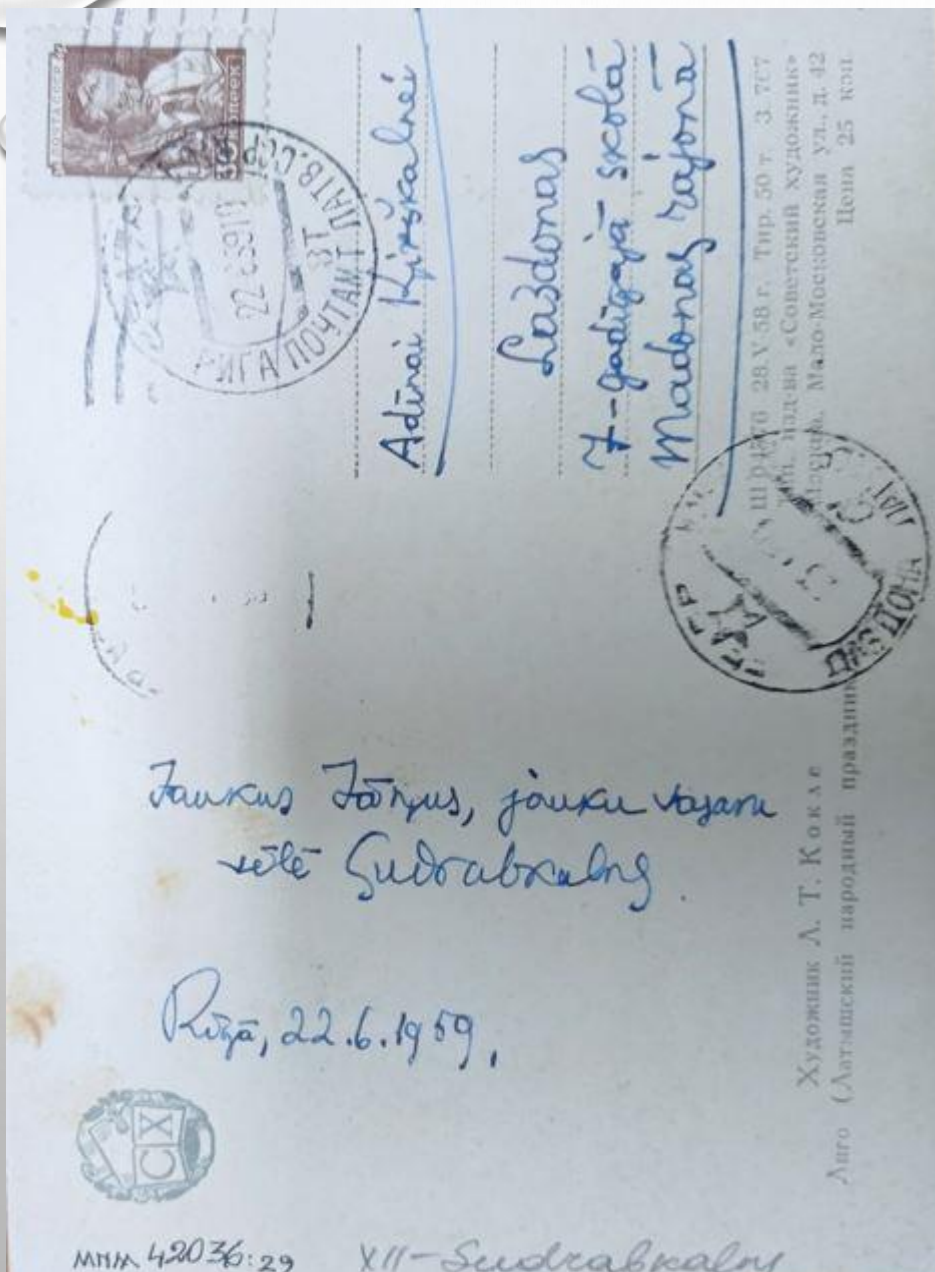 ПОЧТА СССР
РИГА ПОЧТАМТ ЛАТВ. ССР
22 6 59 1
3Т
Adīnai Ķirškalnei
Lazdonas
7-gadīgajā skolā
Madonas rajonā
28.V-58 г. Тир. 50 т. З. 767
изд-ва «Советский художник»
Москва, Мало-Московская ул., д. 42
Цена 25 коп.
Jaukus Jāņus, jauku vasaru
vēlē Sudrabkalns.
Rīgā, 22.6.1959.
Художник Л. Т. Кокле
Лиго (Латышский народный праздник
СХ
МММ 42036:29
XII-Sudrabkalns